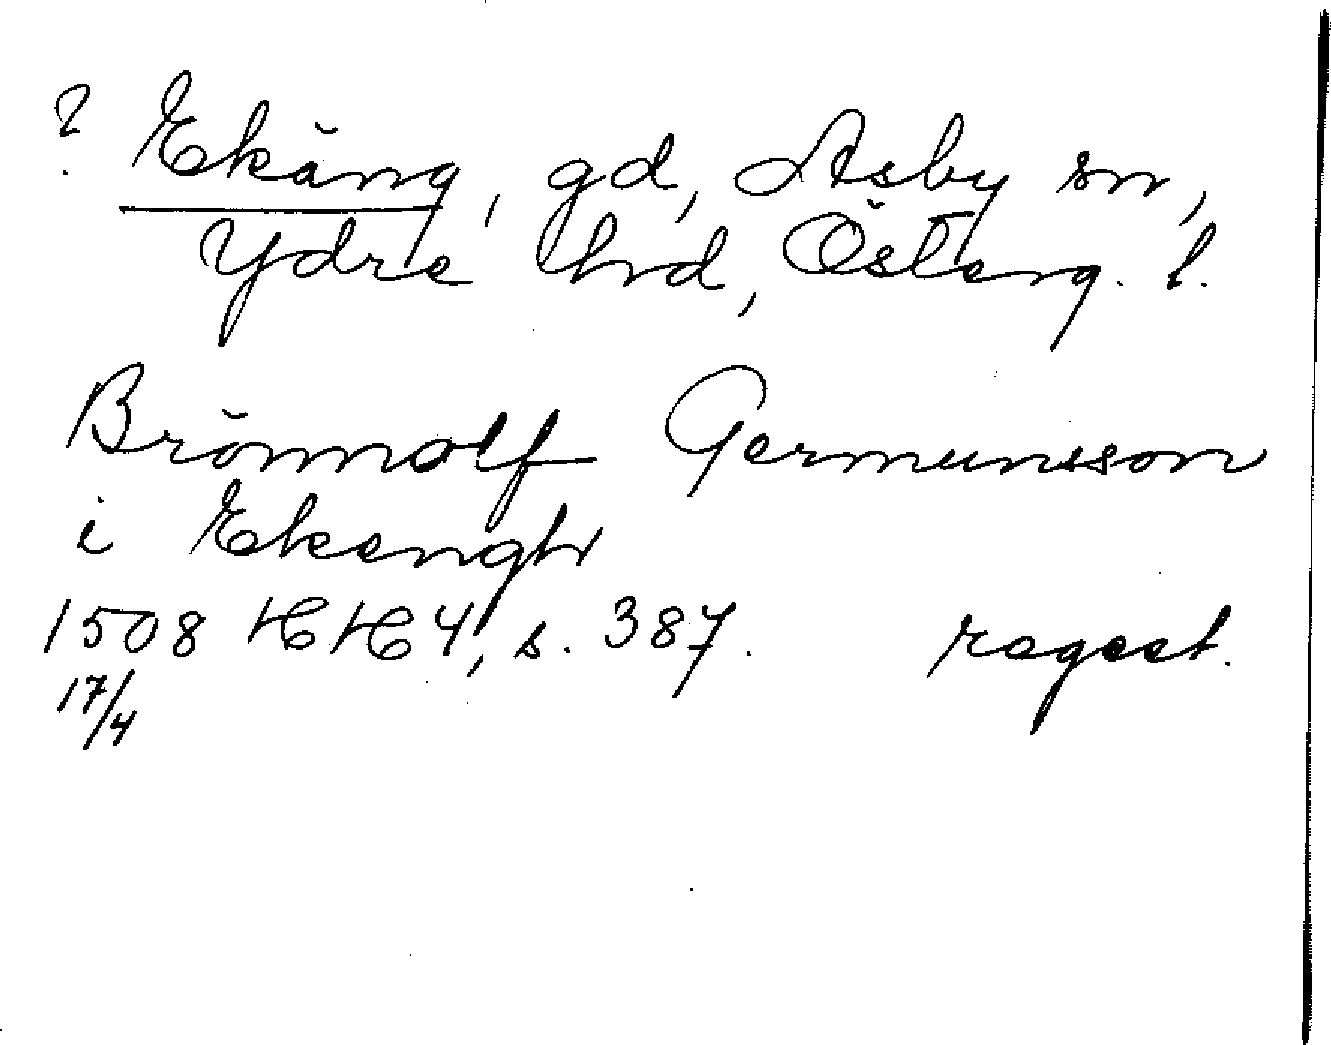 ? Ekäng, gd, Asby sn,
Ydre hd, Österg. l.
Brönnolf Germunsson
i Ekengh
1508 HH4, s. 387. regest.
17/4